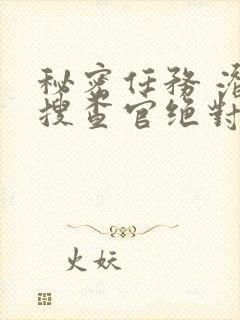 秘密任務
搜查官绝對
火妖